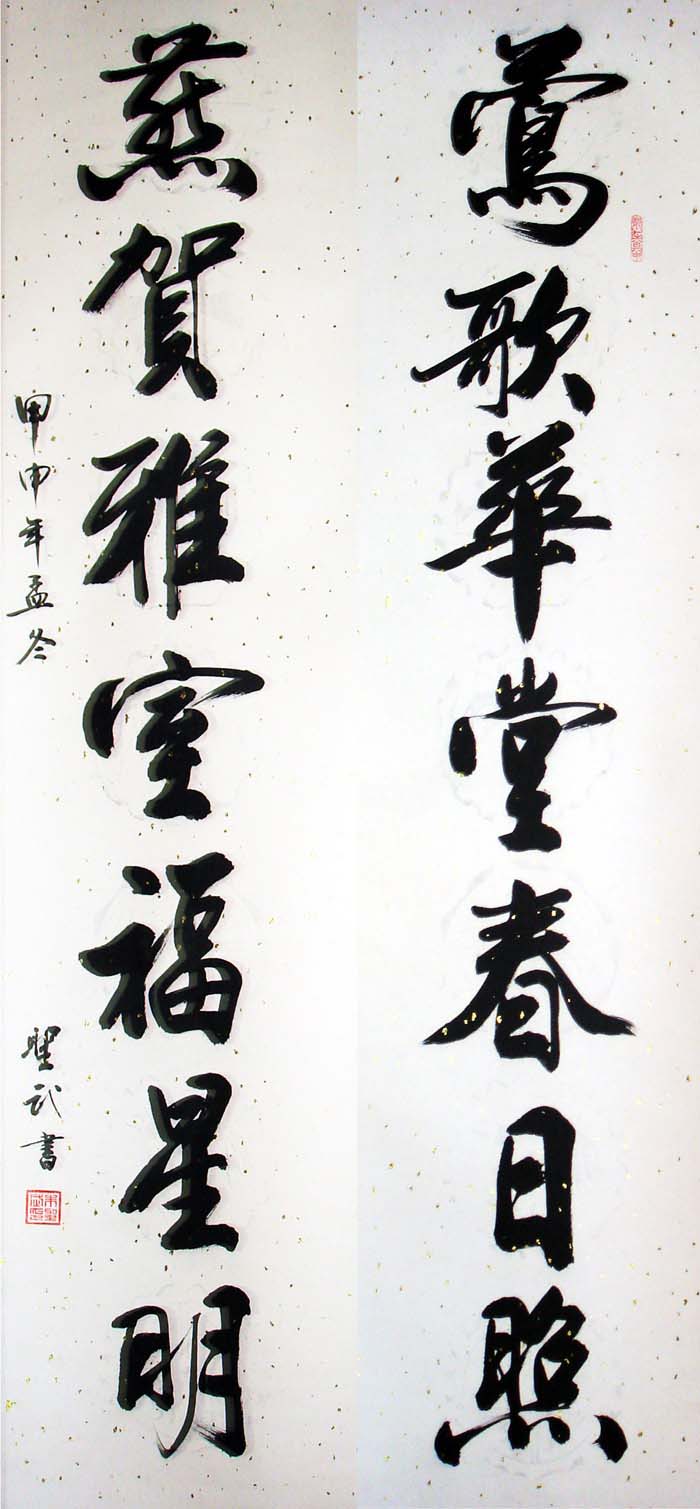 鶯歌華堂春日照
燕賀雅室福星明
甲申年孟冬
聖武書